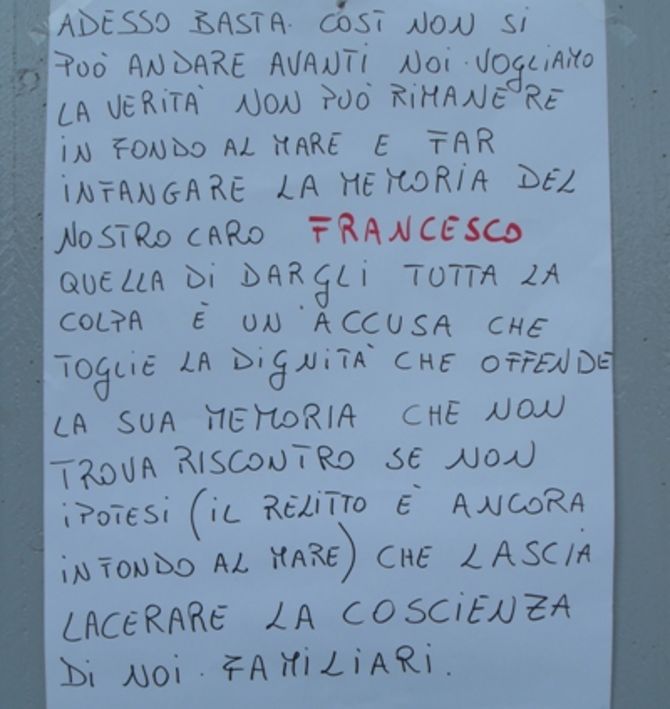 ADESSO BASTA. COSÌ NON SI
PUÒ ANDARE AVANTI NOI. VOGLIAMO
LA VERITÀ NON PUÒ RIMANERE
IN FONDO AL MARE E FAR
INFANGARE LA MEMORIA DEL
NOSTRO CARO FRANCESCO
QUELLA DI DARGLI TUTTA LA
COLPA È UN'ACCUSA CHE
TOGLIE LA DIGNITÀ CHE OFFENDE
LA SUA MEMORIA CHE NON
TROVA RISCONTRO SE NON
IPOTESI (IL RELITTO È ANCORA
IN FONDO AL MARE) CHE LASCIA
LACERARE LA COSCIENZA
DI NOI. FAMILIARI.